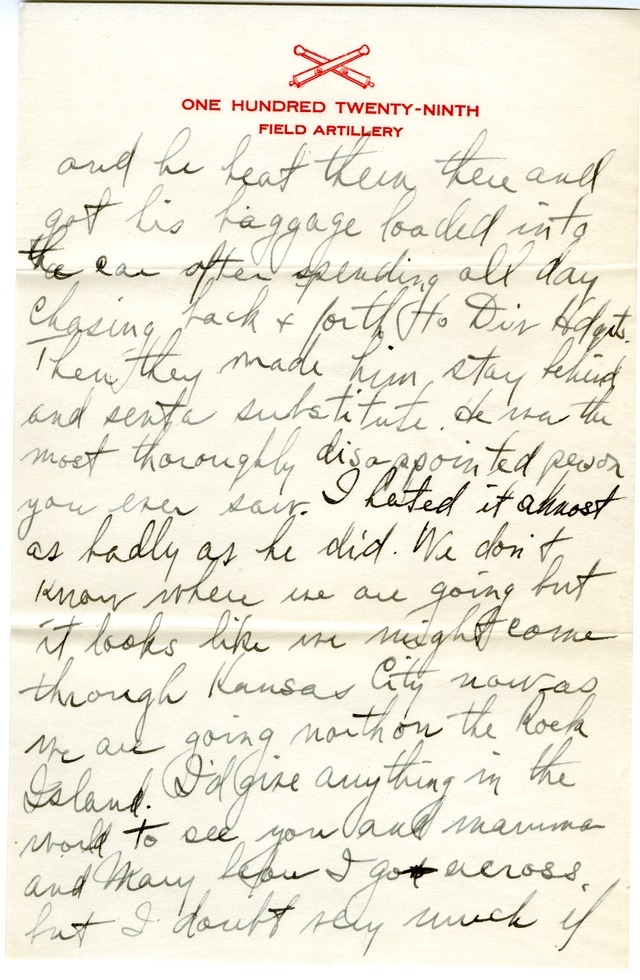 ONE HUNDRED TWENTY-NINTH
FIELD ARTILLERY
and he beat them there and
got his baggage loaded into
the car after spending all day
chasing back & forth to Div Hdqts.
Then they made him stay behind
and sent a substitute. He was the
most thoroughly disappointed person
you ever saw. I hated it almost
as badly as he did. We don't
know where we are going but
it looks like we might come
through Kansas City now as
we are going north on the Rock
Island. I'd give anything in the
world to see you and mamma
and Mary before I go across
but I doubt very much if